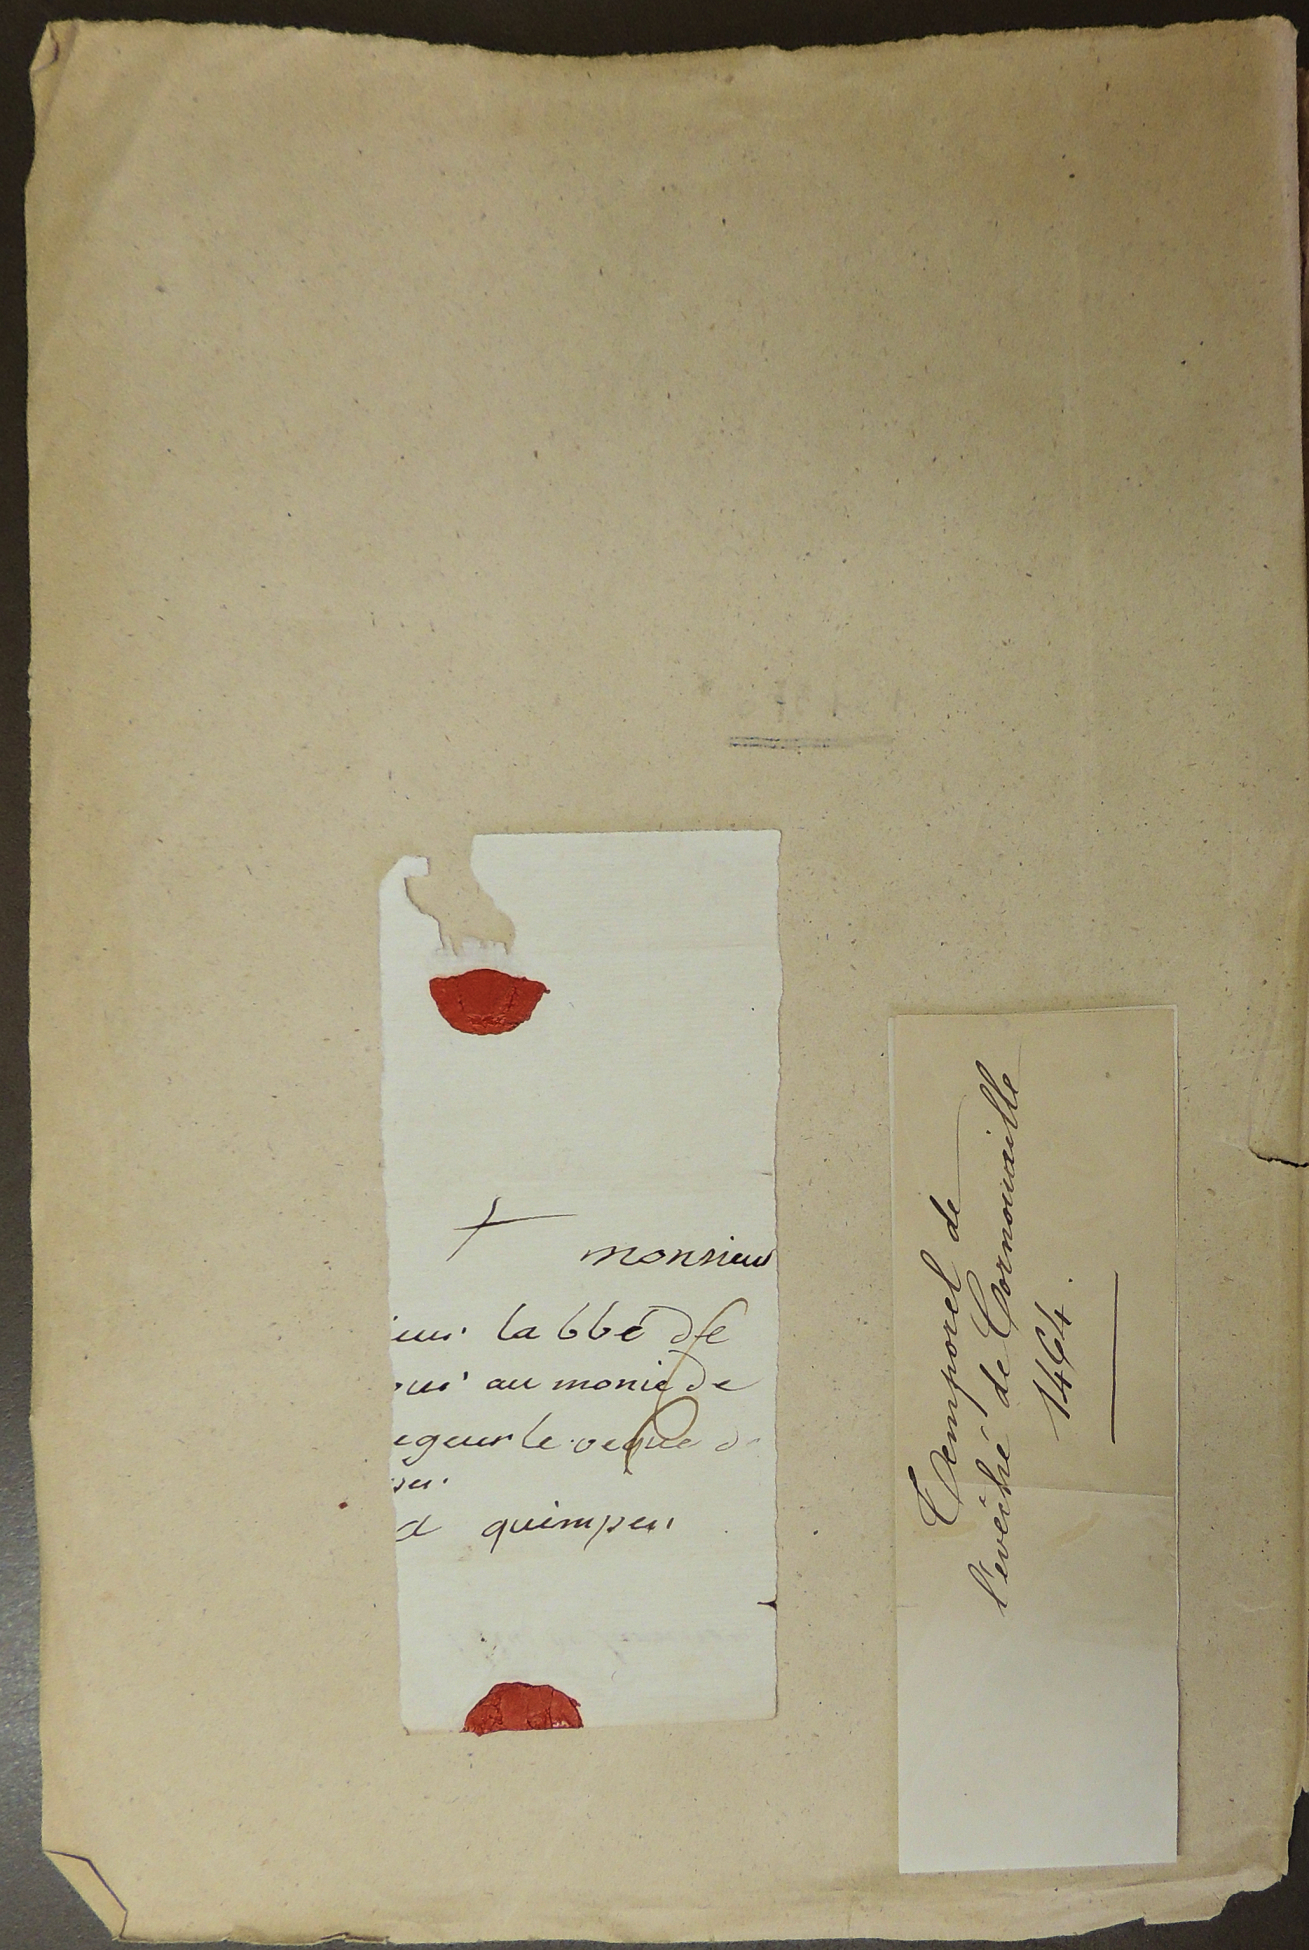 monsieur
ieur labbé de
oui au monie de
egeur le veque d
per
a quimper
Temporel de
l'evêché de Cornouaille
1464.